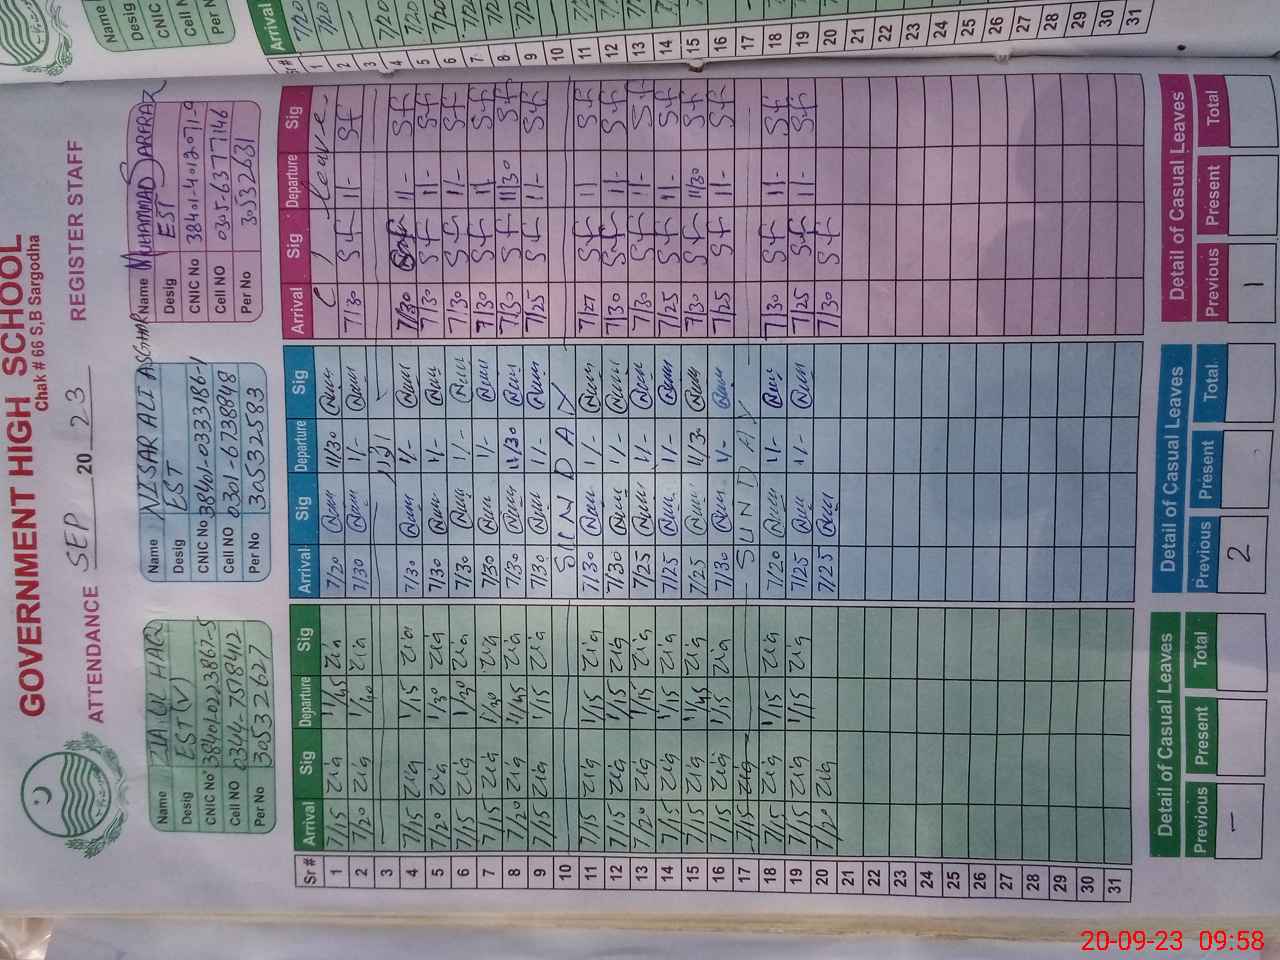 GOVERNMENT HIGH SCHOOL
Chak # 66 S,B Sargodha
ATTENDANCE SEP 20 23 REGISTER STAFF
Name ZIA UL HAQ
Desig EST (V)
CNIC No 38401-0223867-5
Cell NO 0344-7518412
Per No 30532627
Name NISSAR ALI ASGHAR
Desig EST
CNIC No 38401-0333186-1
Cell NO 0301-6738848
Per No 30532583
Name MUHAMMAD SARFRAZ
Desig EST
CNIC No 38401-4012071-9
Cell NO 0305-6377146
Per No 30532631
Sr # Arrival Sig Departure Sig Arrival Sig Departure Sig Arrival Sig Departure Sig
1 7/15 Zia 1/45 Zia 7/20 11/30 leave
2 7/20 Zia 1/40 Zia 7/30 1/- 7/30 Sf 11/- Sf
3
4 7/15 Zia 1/15 Zia 7/30 1/- 7/30 11/- Sf
5 7/20 Zia 1/30 Zia 7/30 1/- 7/30 Sf 11/- Sf
6 7/15 Zia 1/20 Zia 7/30 1/- 7/30 Sf 11/- Sf
7 7/15 Zia 1/20 Zia 7/30 1/- 7/30 Sf 11 Sf
8 7/20 Zia 1/45 Zia 7/30 11/30 7/30 Sf 11/30 Sf
9 7/15 Zia 1/15 Zia 7/30 1/- 7/25 Sf 11/- Sf
10 SUNDAY
11 7/15 Zia 1/15 Zia 7/30 1/- 7/27 Sf 11 Sf
12 7/15 Zia 1/15 Zia 7/30 1/- 7/30 Sf 11/- Sf
13 7/20 Zia 1/15 Zia 7/25 1/- 7/30 Sf 11/- Sf
14 7/15 Zia 1/15 Zia 7/25 1/- 7/25 Sf 11 Sf
15 7/15 Zia 1/45 Zia 7/25 11/30 7/30 Sf 11/30 Sf
16 7/15 Zia 1/15 Zia 7/30 1/- 7/25 Sf 11/- Sf
17 7/15 Zia SUNDAY
18 7/15 Zia 1/15 Zia 7/20 1/- 7/30 Sf 11/- Sf
19 7/15 Zia 1/15 Zia 7/25 1/- 7/25 Sf 11/- Sf
20 7/20 Zia 7/25 7/30 Sf
21
22
23
24
25
26
27
28
29
30
31
Detail of Casual Leaves Detail of Casual Leaves Detail of Casual Leaves
Previous Present Total Previous Present Total Previous Present Total
- 2 1
Name
Desig
CNIC
Cell N
Per N
Sr # Arrival
1 7/20
2
3
4
5
6
7
8
9
10
11
12
13
14
15
16
17
18
19
20
21
22
23
24
25
26
27
28
29
30
31
20-09-23 09:58